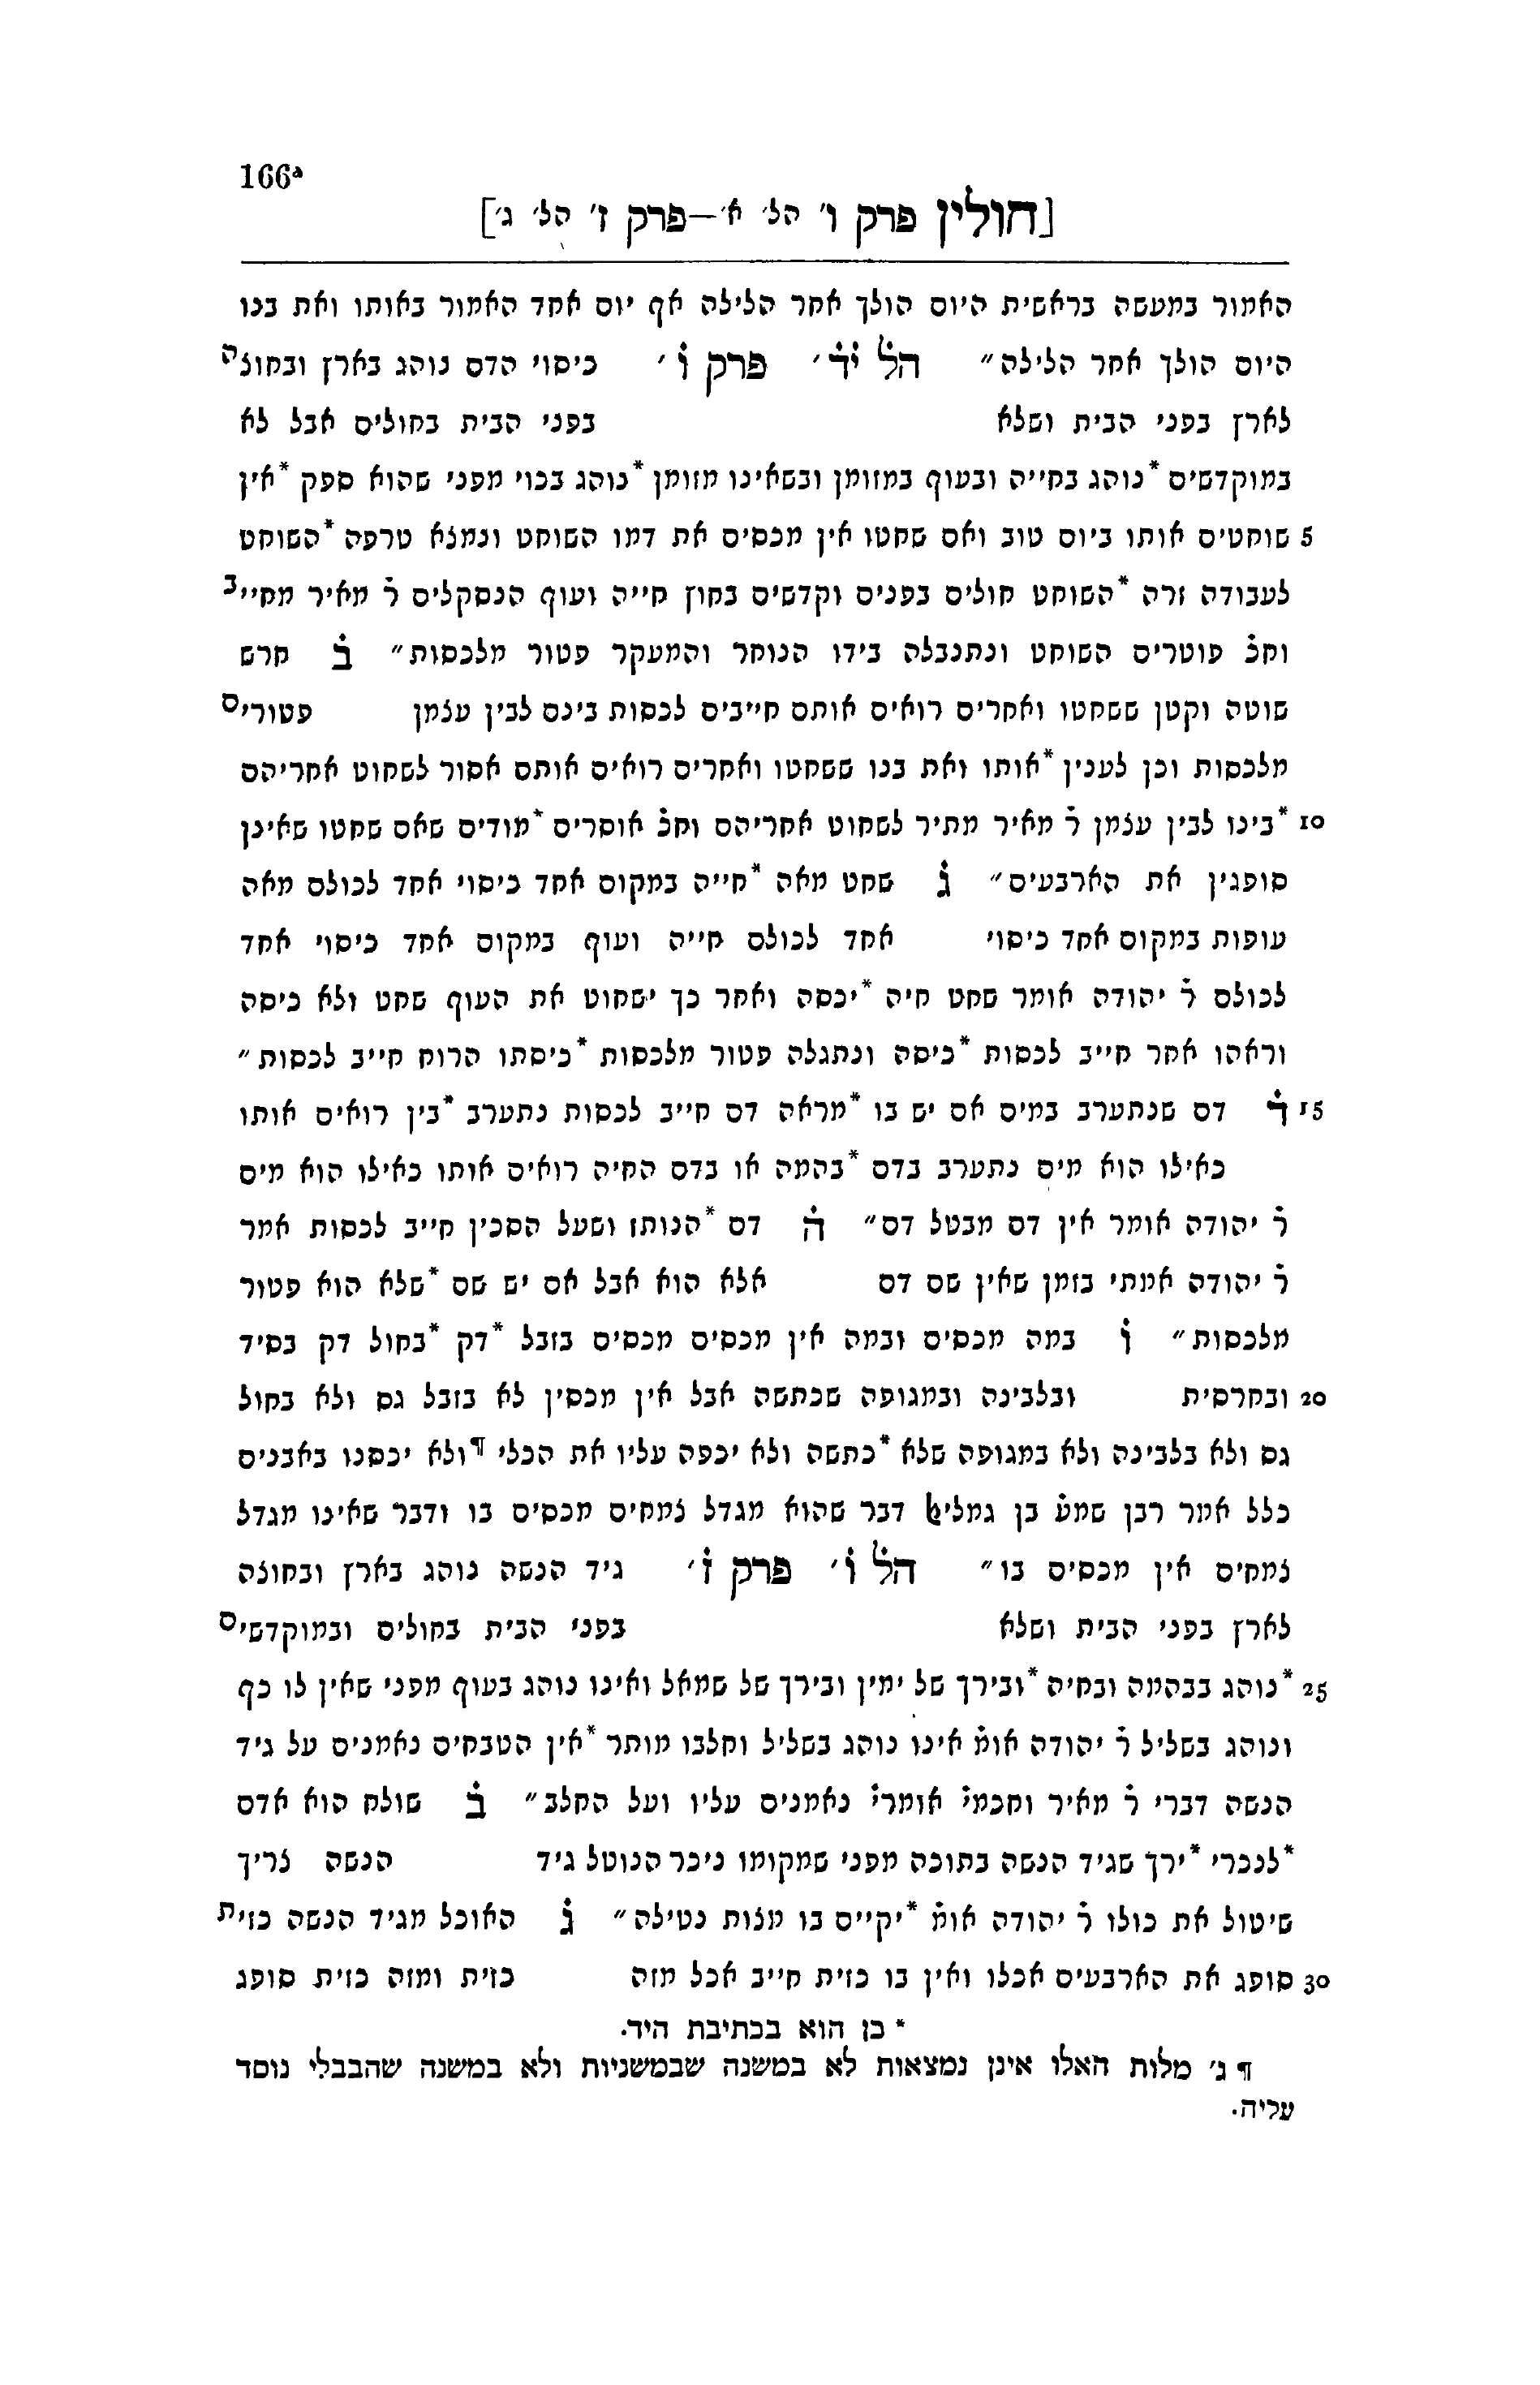 166a
[חולין פרק ו' הל' א'—פרק ז' הל' ג']
האמור במעשה בראשית היום הולך אחר הלילה אף יום אחד האמור באותו ואת בנו
היום הולך אחר הלילה״ הל̇ י̇ד̇׳ פרק ו̇׳ כיסוי הדם נוהג בארץ ובחוצה
לארץ בפני הבית ושלא בפני הבית בחולים אבל לא
במוקדשים *נוהג בחייה ובעוף במזומן ובשאינו מזומן *נוהג בכוי מפני שהוא ספק *אין
5 שוחטים אותו ביום טוב ואם שחטו אין מכסים את דמו השוחט ונמצא טרפה *השוחט
לעבודה זרה *השוחט חולים בפנים וקדשים בחוץ חייה ועוף הנסקלים ר̇ מאיר מחייב
וחכ̇ פוטרים השוחט ונתנבלה בידו הנוחר והמעקר פטור מלכסות״ ב̇ חרש
שוטה וקטן ששחטו ואחרים רואים אותם חייבים לכסות בינם לבין עצמן פטורים
מלכסות וכן לענין *אותו ואת בנו ששחטו ואחרים רואים אותם אסור לשחוט אחריהם
10 *בינו לבין עצמן ר̇ מאיר מתיר לשחוט אחריהם וחכ̇ אוסרים *מודים שאם שחטו שאינן
סופגין את הארבעים״ ג̇ שחט מאה *חייה במקום אחד כיסוי אחד לכולם מאה
עופות במקום אחד כיסוי אחד לכולם חייה ועוף במקום אחד כיסוי אחד
לכולם ר̇ יהודה אומר שחט חיה *יכסה ואחר כך ישחוט את העוף שחט ולא כיסה
וראהו אחר חייב לכסות *כיסה ונתגלה פטור מלכסות *כיסתו הרוח חייב לכסות״
15 ד̇ דם שנתערב במים אם יש בו *מראה דם חייב לכסות נתערב *בין רואים אותו
כאילו הוא מים נתערב בדם *בהמה או בדם החיה רואים אותו כאילו הוא מים
ר̇ יהודה אומר אין דם מבטל דם״ ה̇ דם *הנותז ושעל הסכין חייב לכסות אמר
ר̇ יהודה אמתי בזמן שאין שם דם אלא הוא אבל אם יש שם *שלא הוא פטור
מלכסות״ ו̇ במה מכסים ובמה אין מכסים מכסים בזבל *דק *בחול דק בסיד
20 ובחרסית ובלבינה ובמגופה שכתשה אבל אין מכסין לא בזבל גס ולא בחול
גס ולא בלבינה ולא במגופה שלא *כתשה ולא יכפה עליו את הכלי ¶ולא יכסנו באבנים
כלל אמר רבן שמע̇ בן גמליﭏ דבר שהוא מגדל צמחים מכסים בו ודבר שאינו מגדל
צמחים אין מכסים בו״ הל̇ ו̇׳ פרק ז̇׳ גיד הנשה נוהג בארץ ובחוצה
לארץ בפני הבית ושלא בפני הבית בחולים ובמוקדשים
25 *נוהג בבהמה ובחיה *ובירך של ימין ובירך של שמאל ואינו נוהג בעוף מפני שאין לו כף
ונוהג בשליל ר̇ יהודה אומ̇ אינו נוהג בשליל וחלבו מותר *אין הטבחים נאמנים על גיד
הנשה דברי ר̇ מאיר וחכמי̇ אומרי̇ נאמנים עליו ועל החלב״ ב̇ שולח הוא אדם
*לנכרי *ירך שגיד הנשה בתוכה מפני שמקומו ניכר הנוטל גיד הנשה צריך
שיטול את כולו ר̇ יהודה אומ̇ *יקיים בו מצות נטילה״ ג̇ האוכל מגיד הנשה כזית
30 סופג את הארבעים אכלו ואין בו כזית חייב אכל מזה כזית ומזה כזית סופג
* כן הוא בכתיבת היד.
¶ ג' מלות האלו אינן נמצאות לא במשנה שבמשניות ולא במשנה שהבבלי נוסד
עליה.